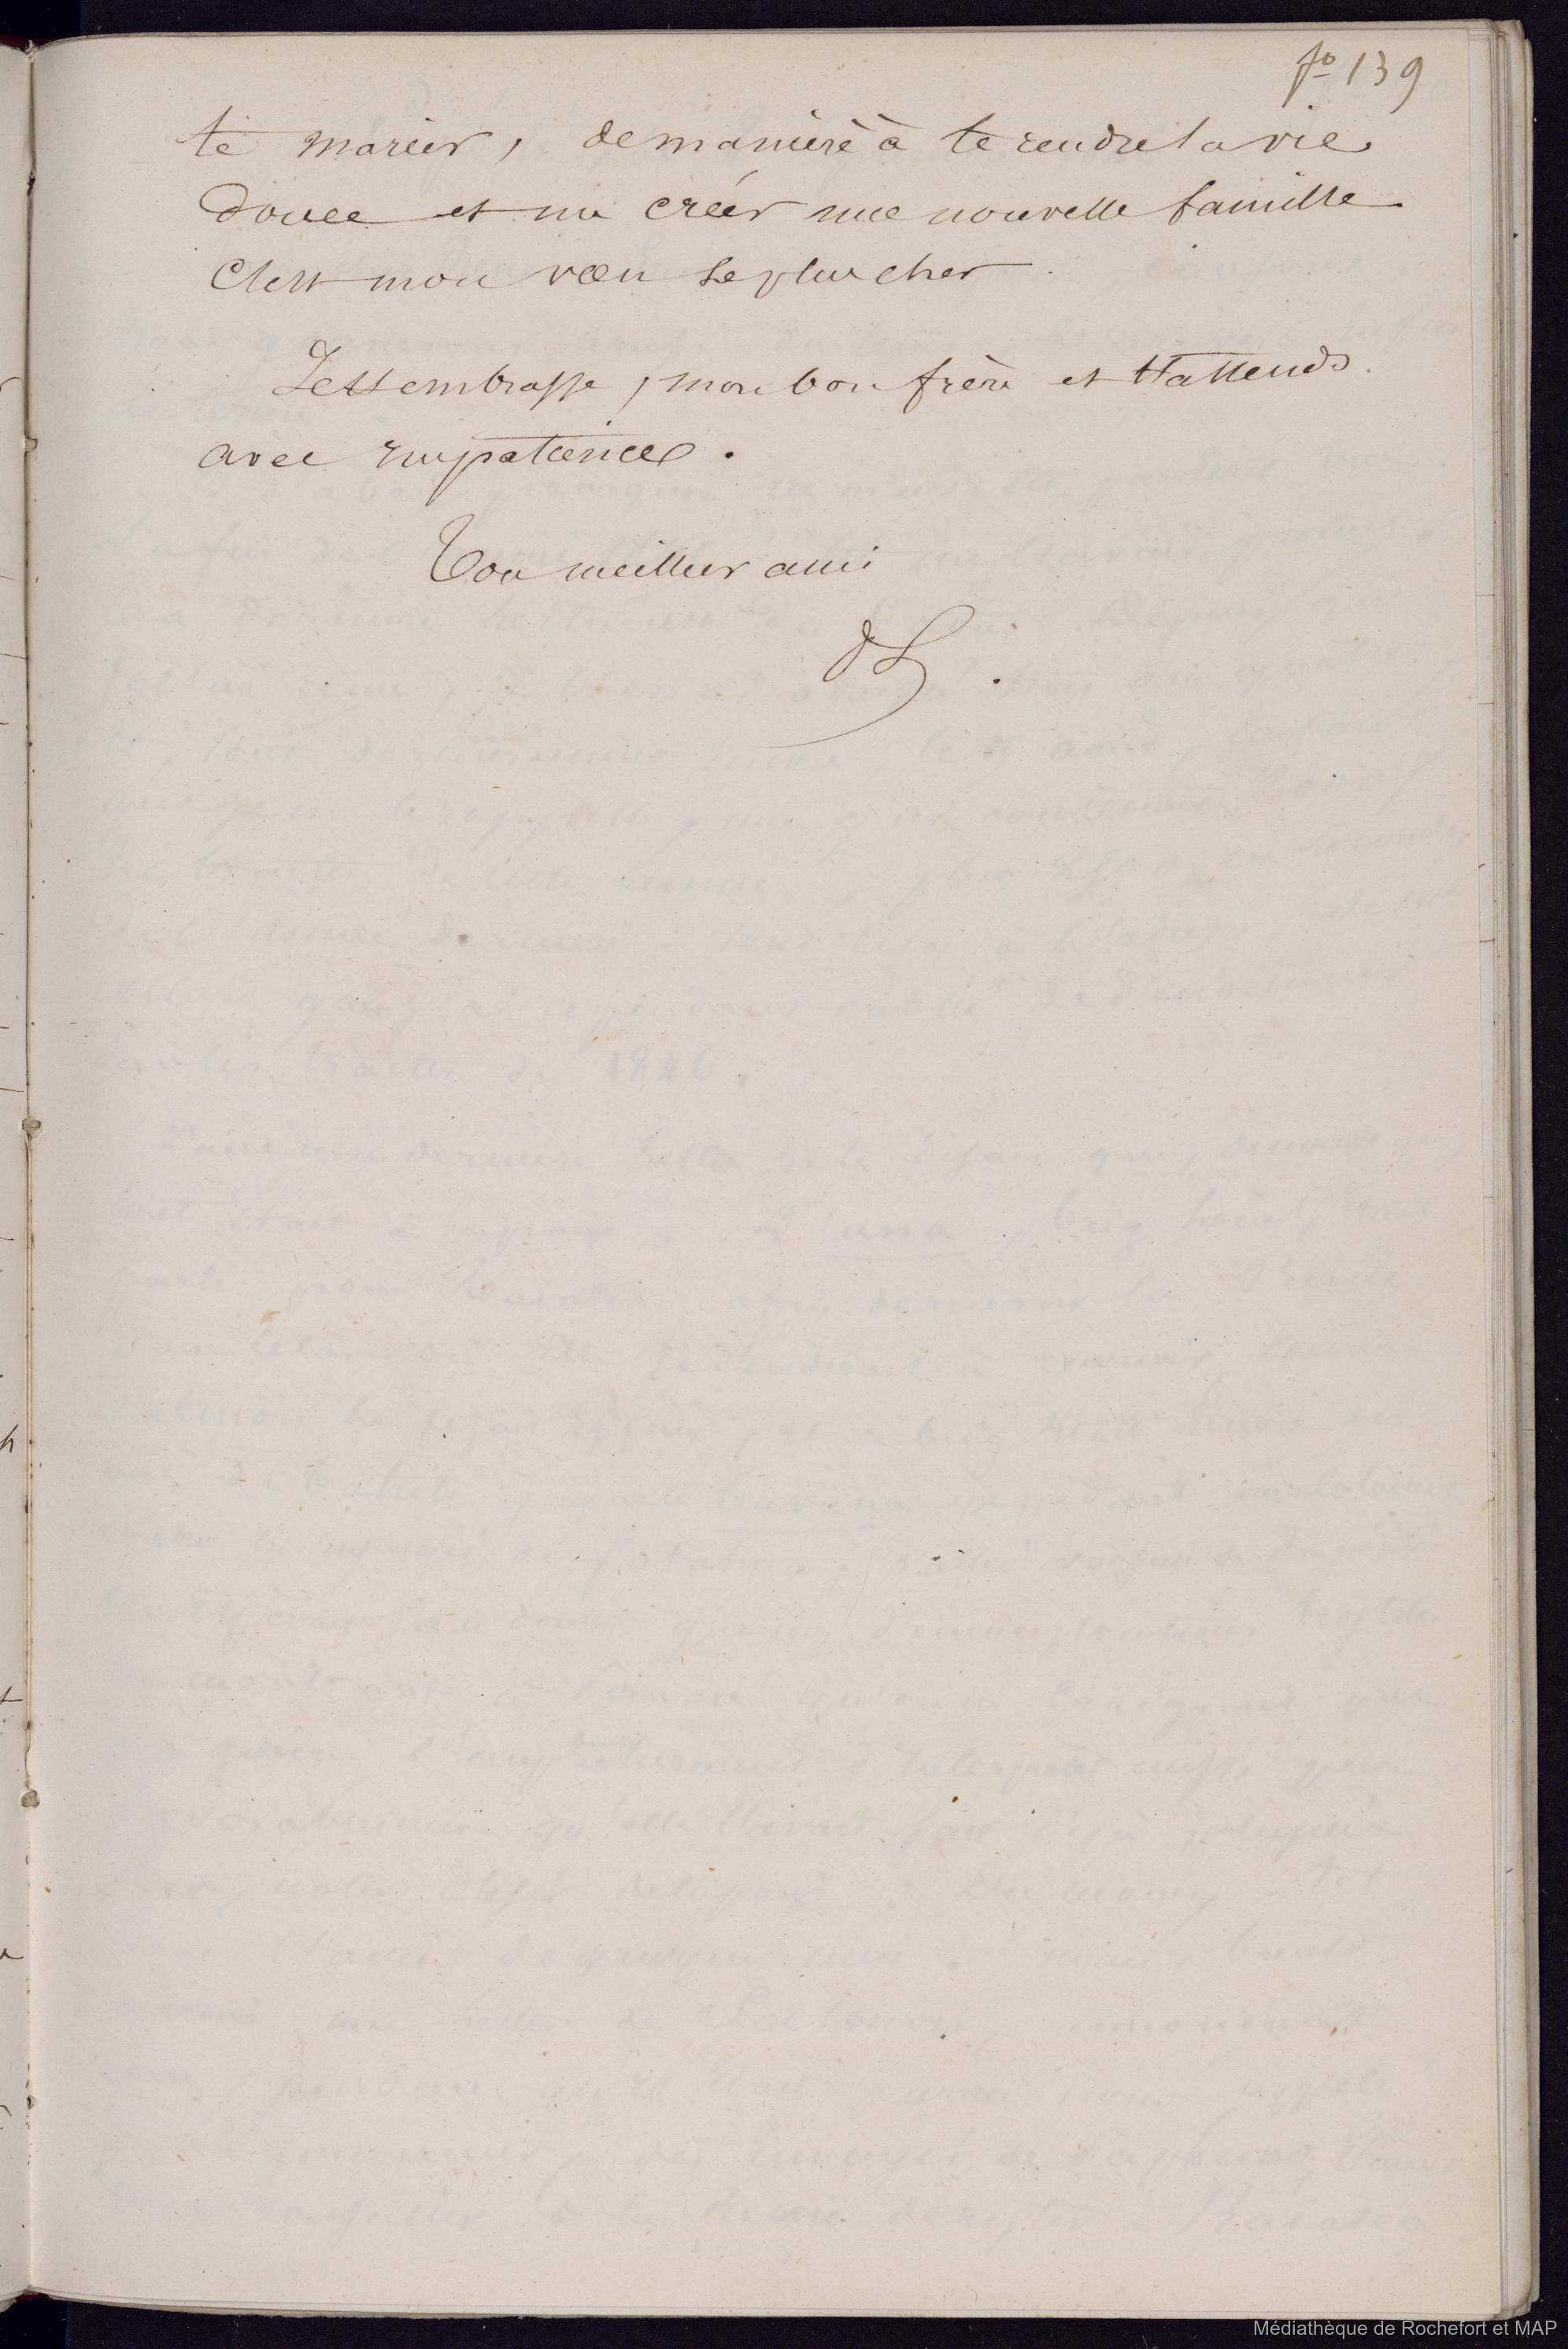 fo 139
te marier, de manière à te rendre la vie
douce et me créer une nouvelle famille.
C'est mon vœu le plus cher.
Je t'embrasse, mon bon frère et t'attends
avec impatience.
Ton meilleur ami
Médiathèque de Rochefort et MAP